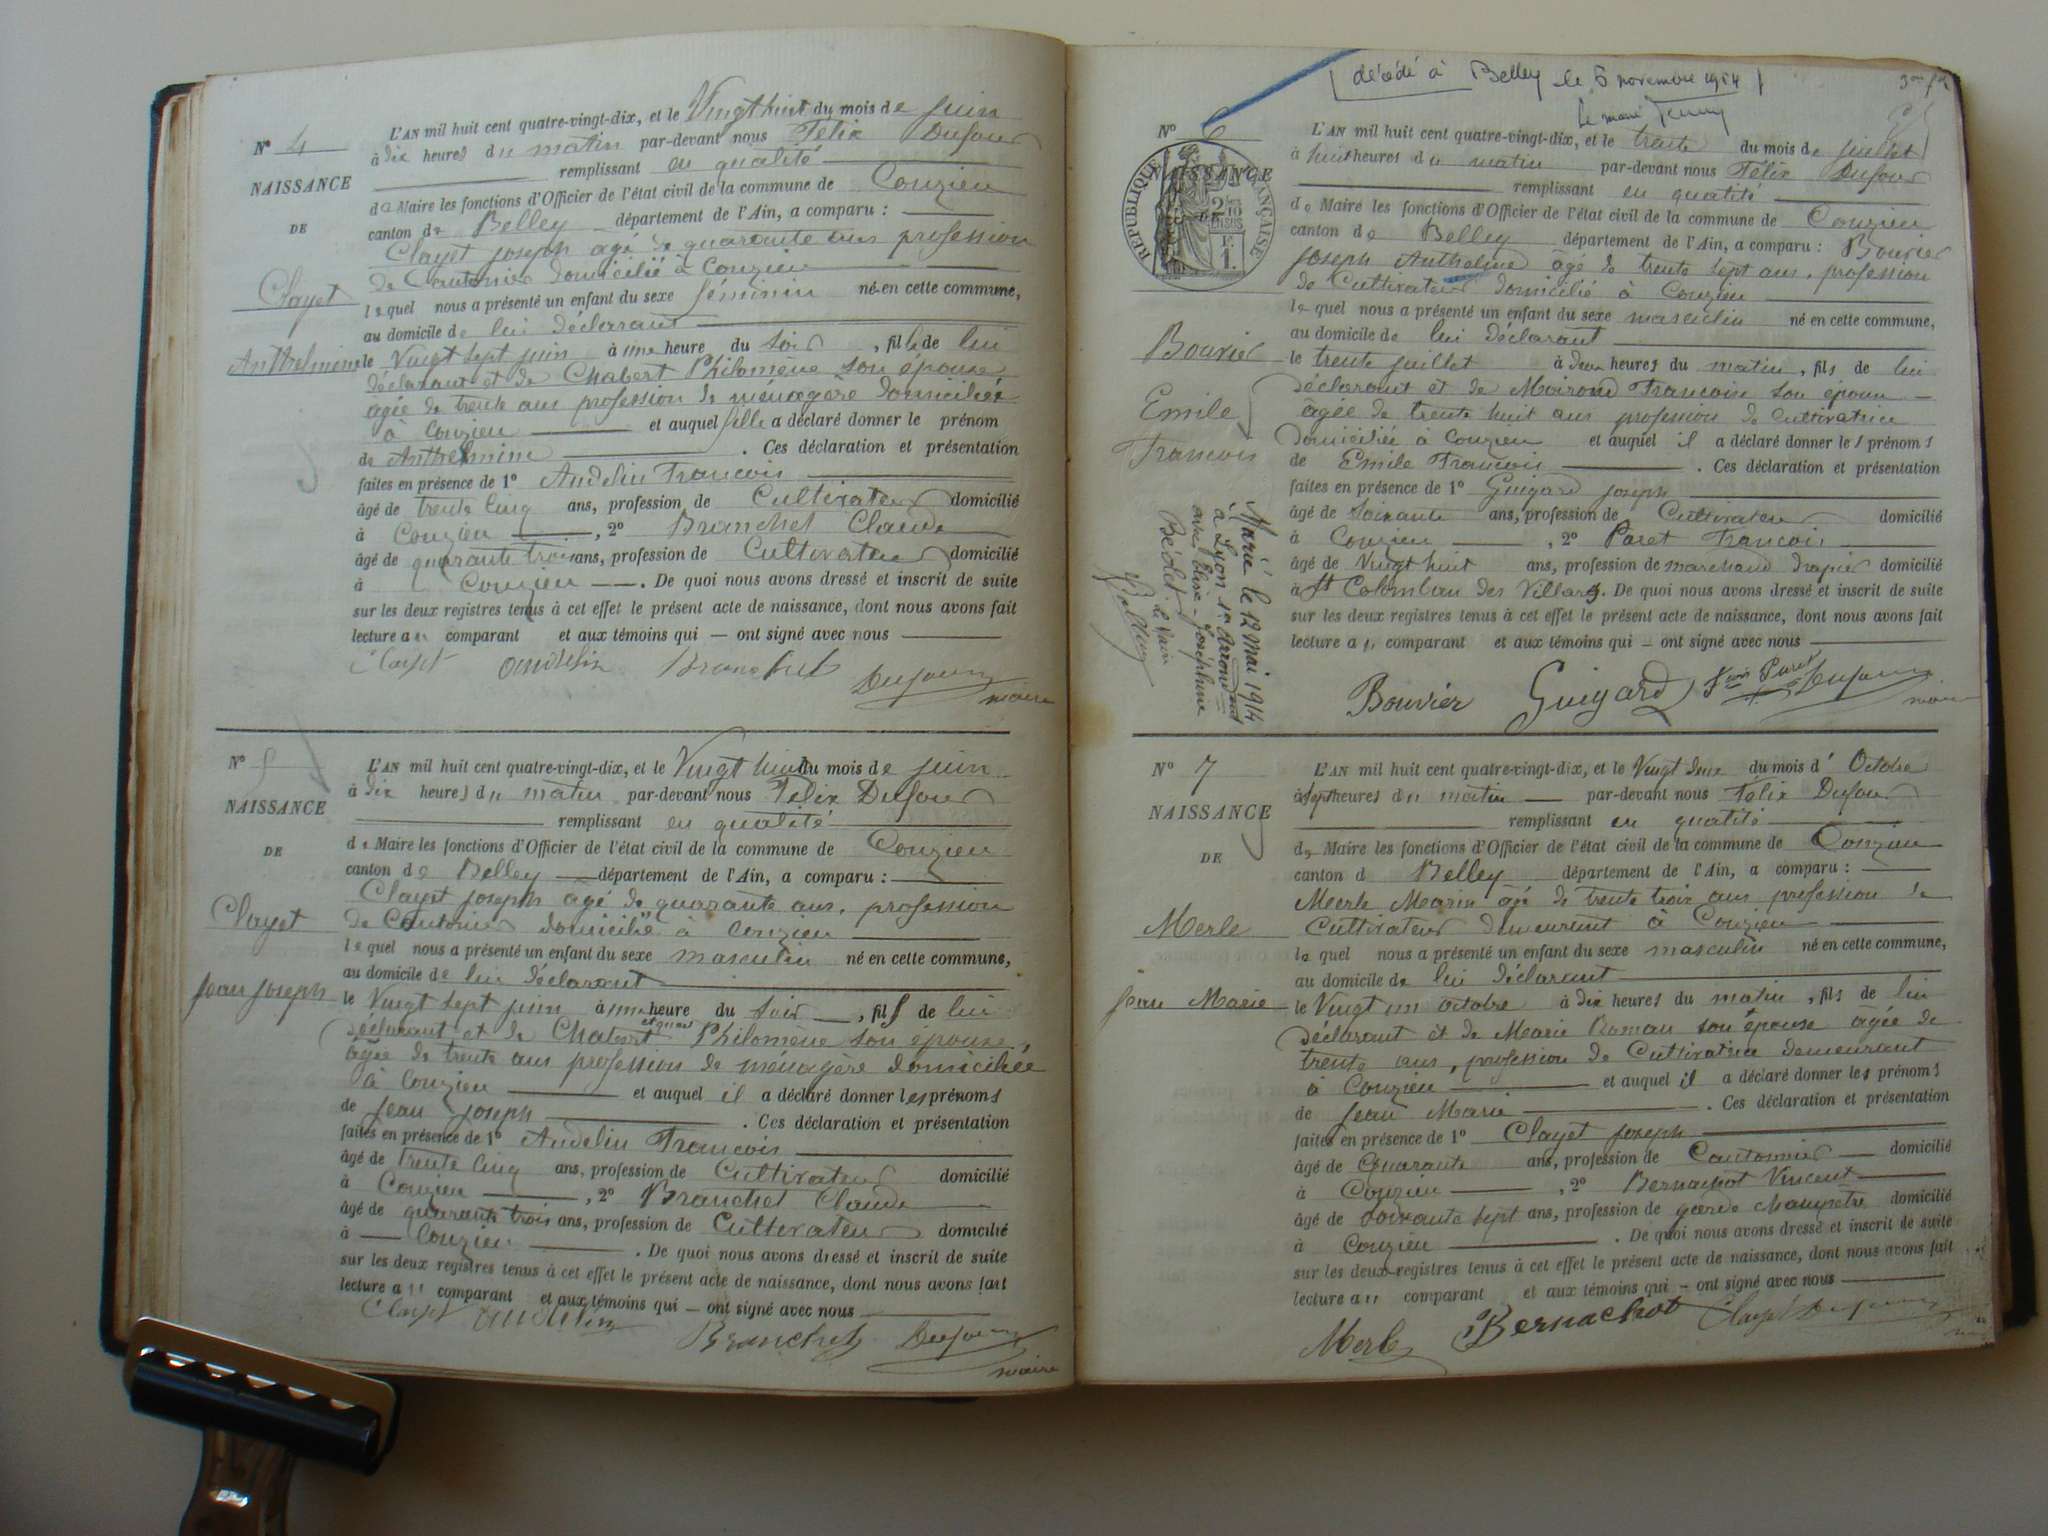 N° 4
NAISSANCE
DE
Clayet
Anthelmine
L'AN mil huit cent quatre-vingt-dix, et le Vingt huit du mois de juin
à dix heures du matin par-devant nous Félix Dufour
remplissant en qualité
de Maire les fonctions d'Officier de l'état civil de la commune de Conzieu
canton de Belley département de l'Ain, a comparu :
Clayet joseph agé de quarante ans profession
de Cantonier domicilié à Conzieu
lequel nous a présenté un enfant du sexe féminin né en cette commune,
au domicile de lui déclarant
le Vingt sept juin à une heure du soir, fille de lui
déclarant et de Chabert Philomène son épouse
agée de trente ans profession de ménagère domiciliée
à Conzieu et auquel elle a déclaré donner le prénom
de Anthelmine. Ces déclaration et présentation
faites en présence de 1° Andelin Francois
âgé de trente cinq ans, profession de Cultivateur domicilié
à Conzieu, 2° Branchet Claude
âgé de quarante trois ans, profession de Cultivateur domicilié
à Conzieu. De quoi nous avons dressé et inscrit de suite
sur les deux registres tenus à cet effet le présent acte de naissance, dont nous avons fait
lecture au comparant et aux témoins qui ont signé avec nous
Clayet Andelin Branchet Dufour
maire
N° 5
NAISSANCE
DE
Clayet
jean joseph
L'AN mil huit cent quatre-vingt-dix, et le Vingt huit du mois de juin
à dix heures du matin par-devant nous Félix Dufour
remplissant en qualité
de Maire les fonctions d'Officier de l'état civil de la commune de Conzieu
canton de Belley département de l'Ain, a comparu :
Clayet joseph agé de quarante ans, profession
de Cantonier domicilié à Conzieu
lequel nous a présenté un enfant du sexe masculin né en cette commune,
au domicile de lui déclarant
le Vingt sept juin à une heure du soir, fils de lui
déclarant et de Chabert Philomène son épouse,
âgée de trente ans profession de ménagère domiciliée
à Conzieu et auquel il a déclaré donner les prénoms
de jean joseph. Ces déclaration et présentation
faites en présence de 1° Andelin Francois
âgé de trente cinq ans, profession de Cultivateur domicilié
à Conzieu, 2° Branchet Claude
âgé de quarante trois ans, profession de Cultivateur domicilié
à Conzieu. De quoi nous avons dressé et inscrit de suite
sur les deux registres tenus à cet effet le présent acte de naissance, dont nous avons fait
lecture au comparant et aux témoins qui ont signé avec nous
Clayet Andelin
Branchet Dufour
maire
décédé à Belley le 5 novembre 1954
Le maire
N° 6
NAISSANCE
RÉPUBLIQUE FRANÇAISE
Bouvier
Emile
Francois
Marié le 12 mai 1914
à Lyon 1er Arrondt
avec
Joséphine
le Maire
L'AN mil huit cent quatre-vingt-dix, et le trente du mois de juillet
à huit heures du matin par-devant nous Félix Dufour
remplissant en qualité
de Maire les fonctions d'Officier de l'état civil de la commune de Conzieu
canton de Belley département de l'Ain, a comparu : Bouvier
joseph Anthelme âgé de trente sept ans, profession
de Cultivateur domicilié à Conzieu
lequel nous a présenté un enfant du sexe masculin né en cette commune,
au domicile de lui déclarant
le trente juillet à deux heures du matin, fils de lui
déclarant et de Francoise son épouse
âgée de trente huit ans profession de Cultivatrice
domiciliée à Conzieu et auquel il a déclaré donner les prénoms
de Emile Francois. Ces déclaration et présentation
faites en présence de 1° Guigard joseph
âgé de soixante ans, profession de Cultivateur domicilié
à Conzieu, 2° Paret Francois
âgé de Vingt huit ans, profession de marchand drapier domicilié
à St Colomban des Villars. De quoi nous avons dressé et inscrit de suite
sur les deux registres tenus à cet effet le présent acte de naissance, dont nous avons fait
lecture au comparant et aux témoins qui ont signé avec nous
Bouvier Guigard Paret Dufour
maire
N° 7
NAISSANCE
DE
Merle
jean Marie
L'AN mil huit cent quatre-vingt-dix, et le Vingt deux du mois d' Octobre
à sept heures du matin par-devant nous Félix Dufour
remplissant en qualité
de Maire les fonctions d'Officier de l'état civil de la commune de Conzieu
canton d Belley département de l'Ain, a comparu :
Merle Marin âgé de trente trois ans profession de
Cultivateur demeurent à Conzieu
lequel nous a présenté un enfant du sexe masculin né en cette commune,
au domicile de lui déclarant
le Vingt un octobre à dix heures du matin, fils de lui
déclarant et de Marie Roman son épouse agée de
trente ans, profession de Cultivatrice demeurant
à Conzieu et auquel il a déclaré donner les prénoms
de jean Marie. Ces déclaration et présentation
faites en présence de 1° Clayet joseph
âgé de Quarante ans, profession de Cantonnier domicilié
à Conzieu, 2° Bernachot Vincent
âgé de soixante sept ans, profession de garde champêtre domicilié
à Conzieu. De quoi nous avons dressé et inscrit de suite
sur les deux registres tenus à cet effet le présent acte de naissance, dont nous avons fait
lecture au comparant et aux témoins qui ont signé avec nous
Merle Bernachot Clayet Dufour